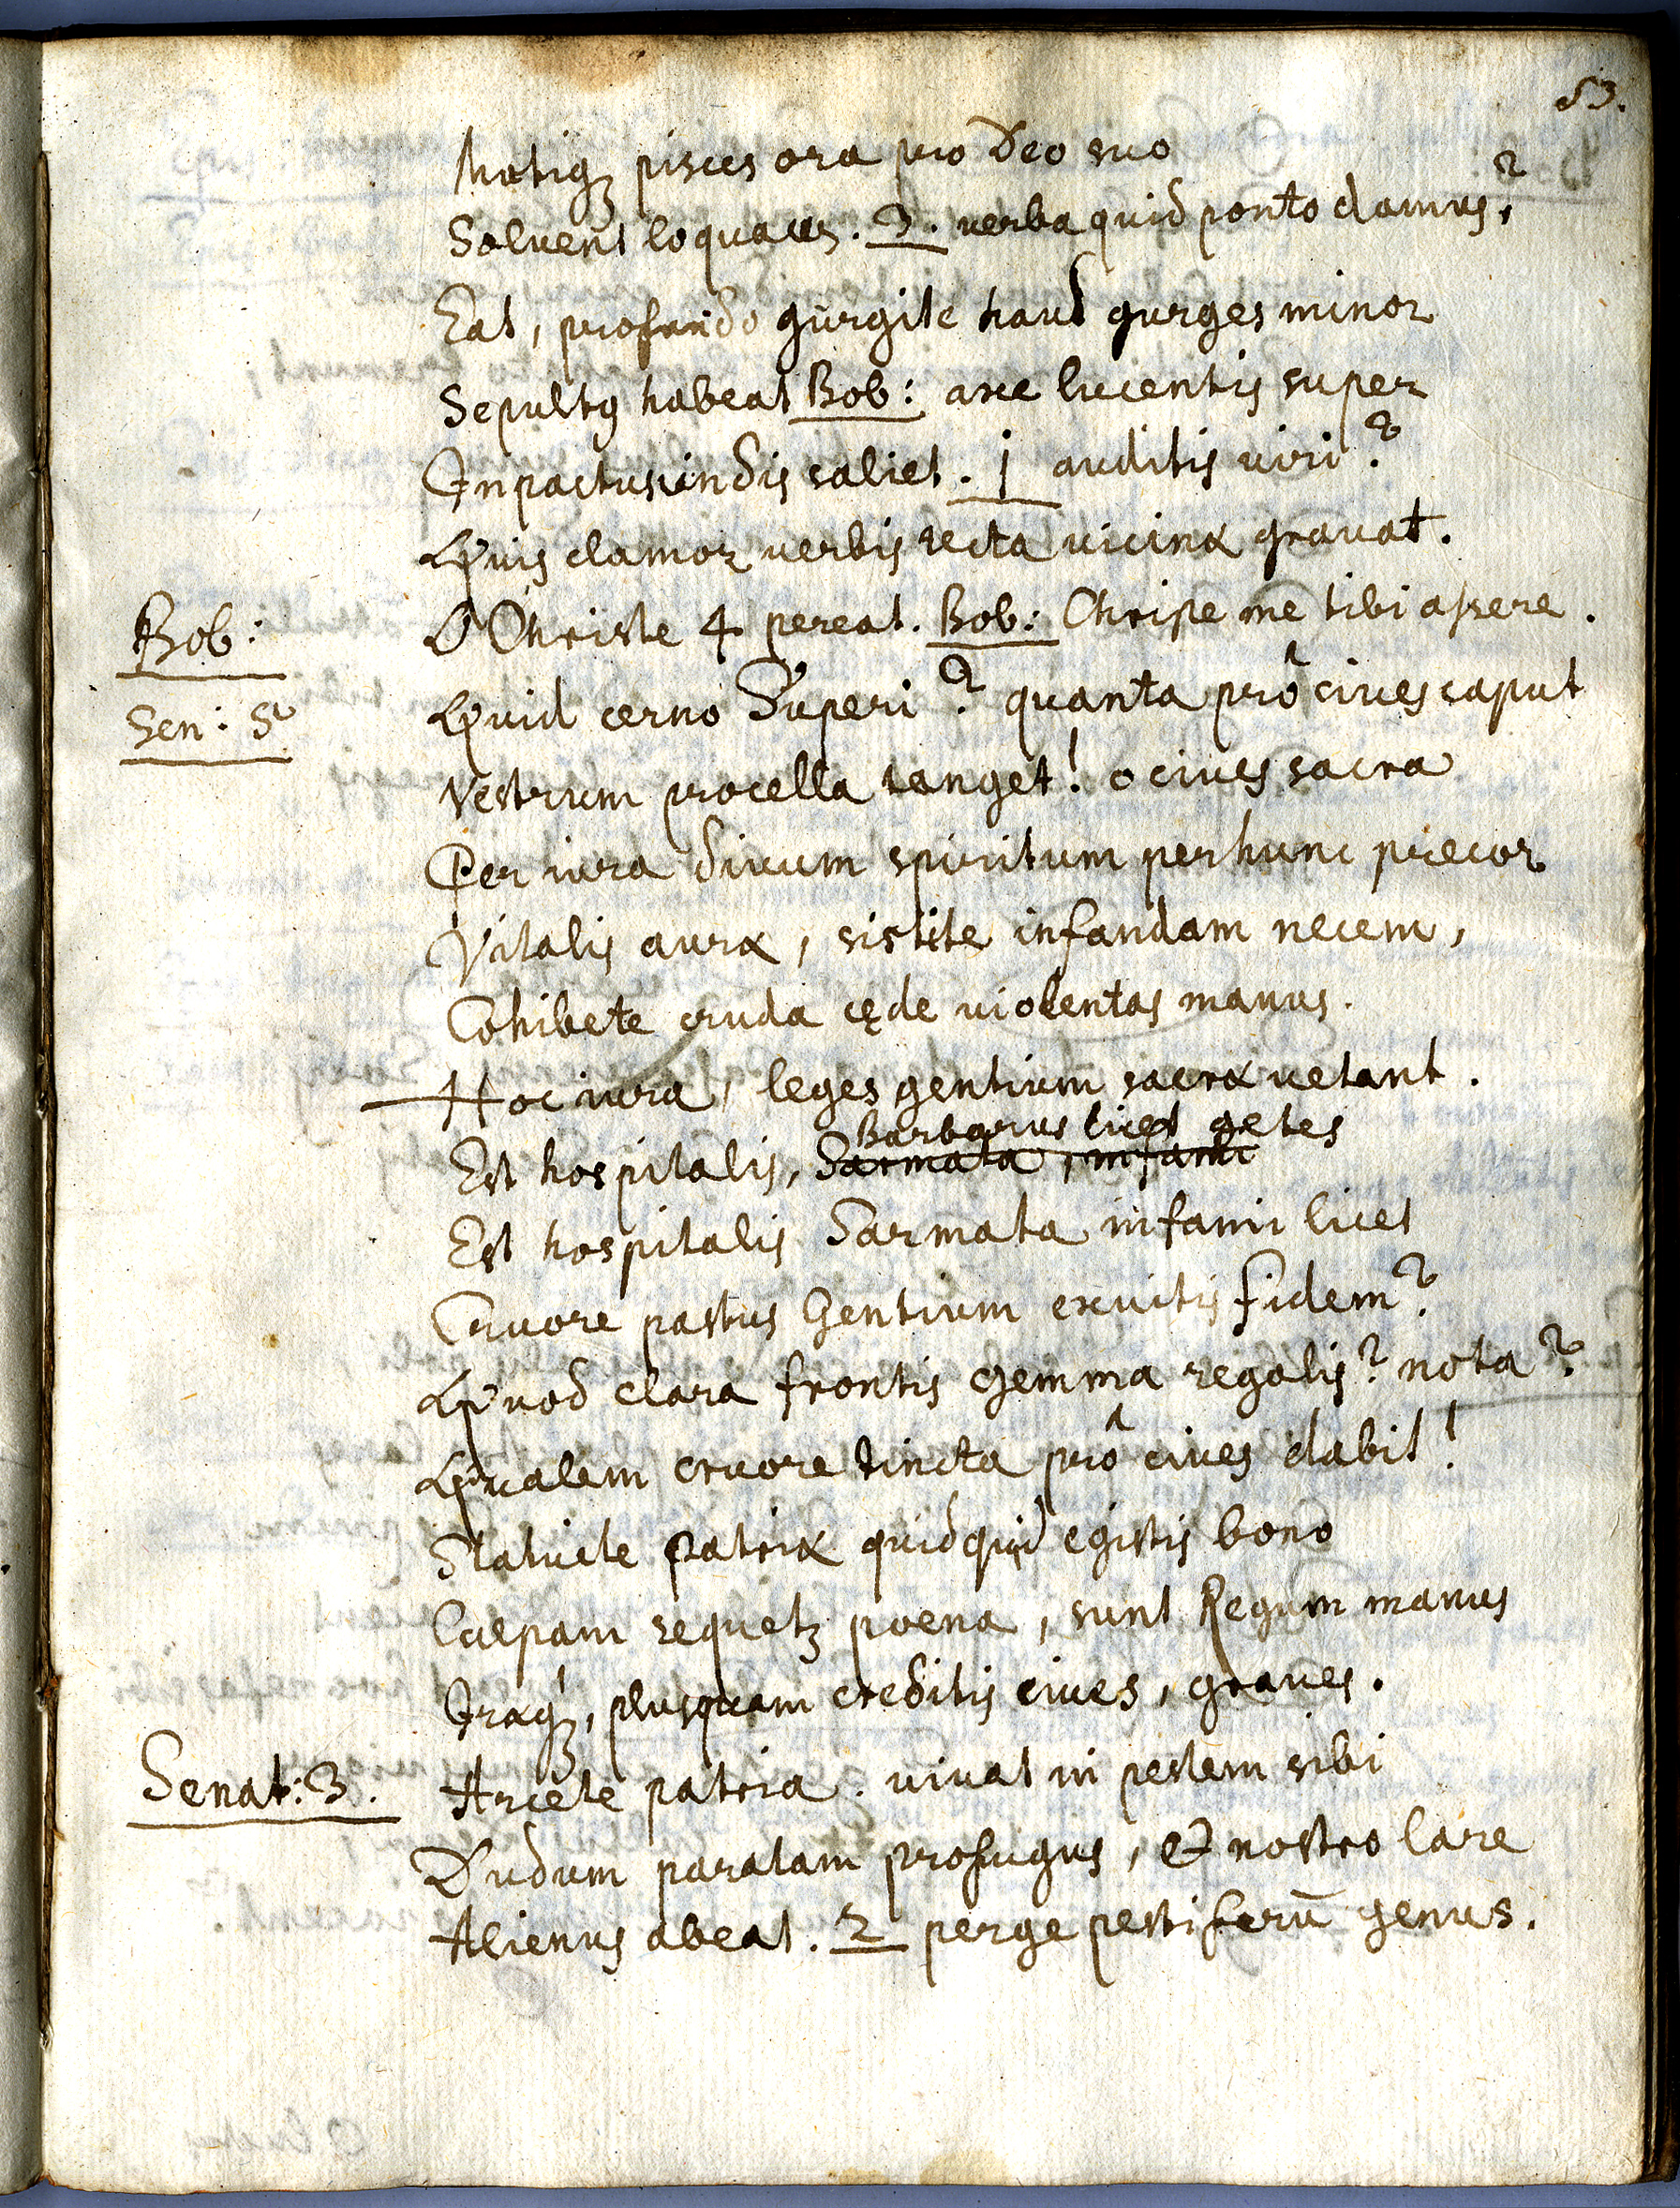 53.
Mutiqꝫ pisces ora pro Deo suo
Solvent loquaces. 3. verba quid ponto damus?
Eat, profundo gurgite haud gurges minor
Sepultꝯ habeat Bob: axe lucentis super
Inpactus undis saliet. 1 auditis viri?
Quis clamor verbis tecta vicina gravat.
Bob: O Christe 4 pereat. Bob: Christe me tibi assere.
Sen: 5ꝰ Quid cerno Superi? quanta prô cives caput
Vestrum procella tanget! o cives sacra
Per iura divum spiritum per hunc precor
Vitalis auræ, sistite infandam necem,
Cohibete cruda cęde violentas manus.
Hoc iura, leges gentium sacræ vetant.
Barbarus licet getes
Est hospitalis, Sarmata, infami
Est hospitalis Sarmata infami licet
Cruore pastus Gentium exuitis fidem?
Quod clara frontis gemma regalis? nota?
Qualem cruore tincta prô cives dabit!
Statuite patriæ quidquid egistis bono
Culpam sequetꝫ poena, sunt Regum manus
Iræqꝫ, plusquam creditis cives, graves.
Senat: 3. Arcete patria. vivat in pestem sibi
Dudum paratam profugus, & nostro lare
Alienus abeat. 2 perge pestiferū genus.